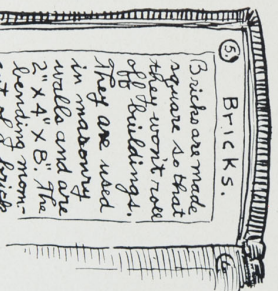 5. Bricks.
Bricks are made
square so that
they won't roll
off buildings.
They are used
in masonry
walls and are
2" x 4" x 8". The
bending mom-
ent of a brick
6.